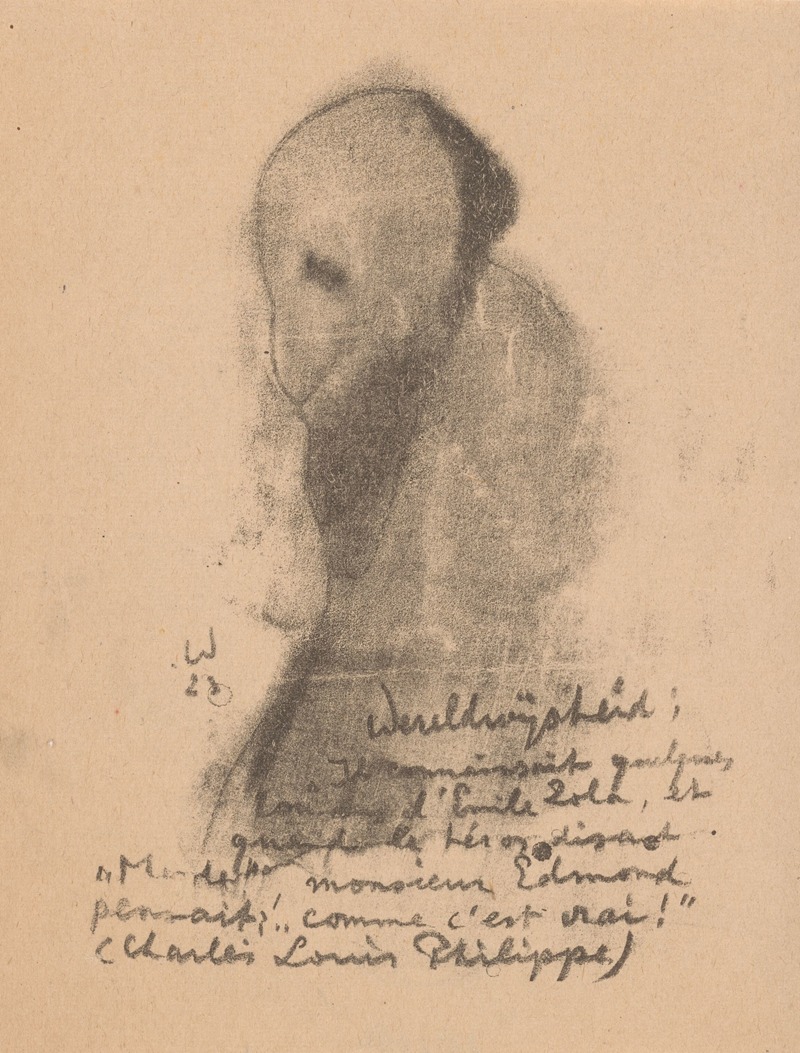 W
23
Wereldwijsheid;
Il connaissait quelques
romans d'Emile Zola, et
quand le héros disait
„Merde!" monsieur Edmond
pensait: „comme c'est vrai!"
(Charles Louis Philippe)